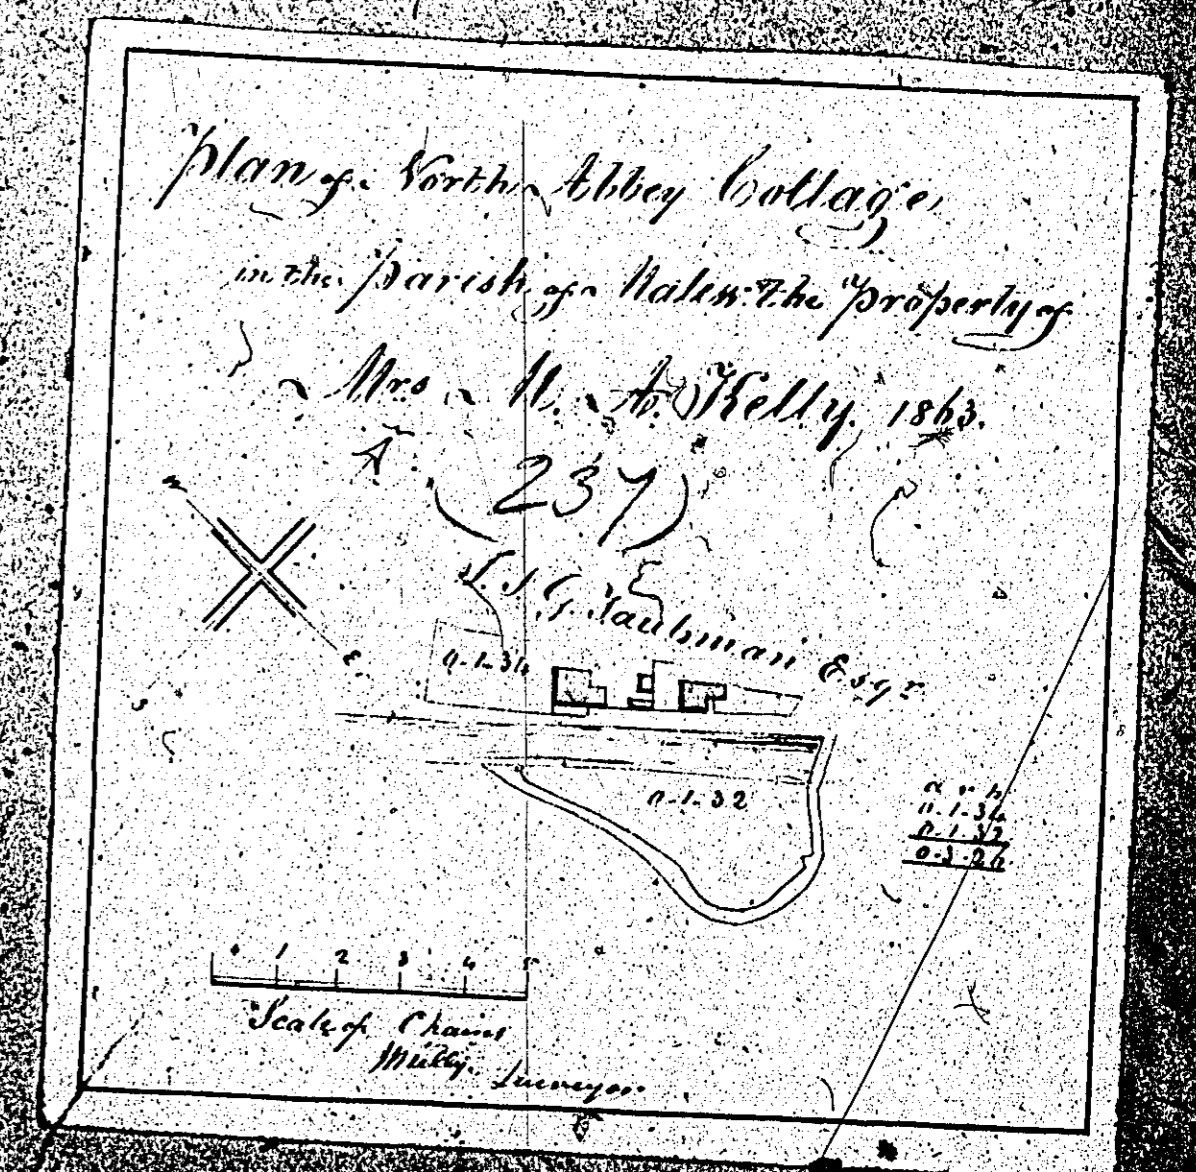 Plan of North Abbey Cottage
in the Parish of Malew the Property of
Mrs M. A. Kelly. 1863.
(237)
J. G. Taubman Esqr
N
E
S
0-1-34
0-1-32
a r p
0-1-34
0-1-32
0-3-26
1 2 3 4 5
Scale of Chains
Surveyor